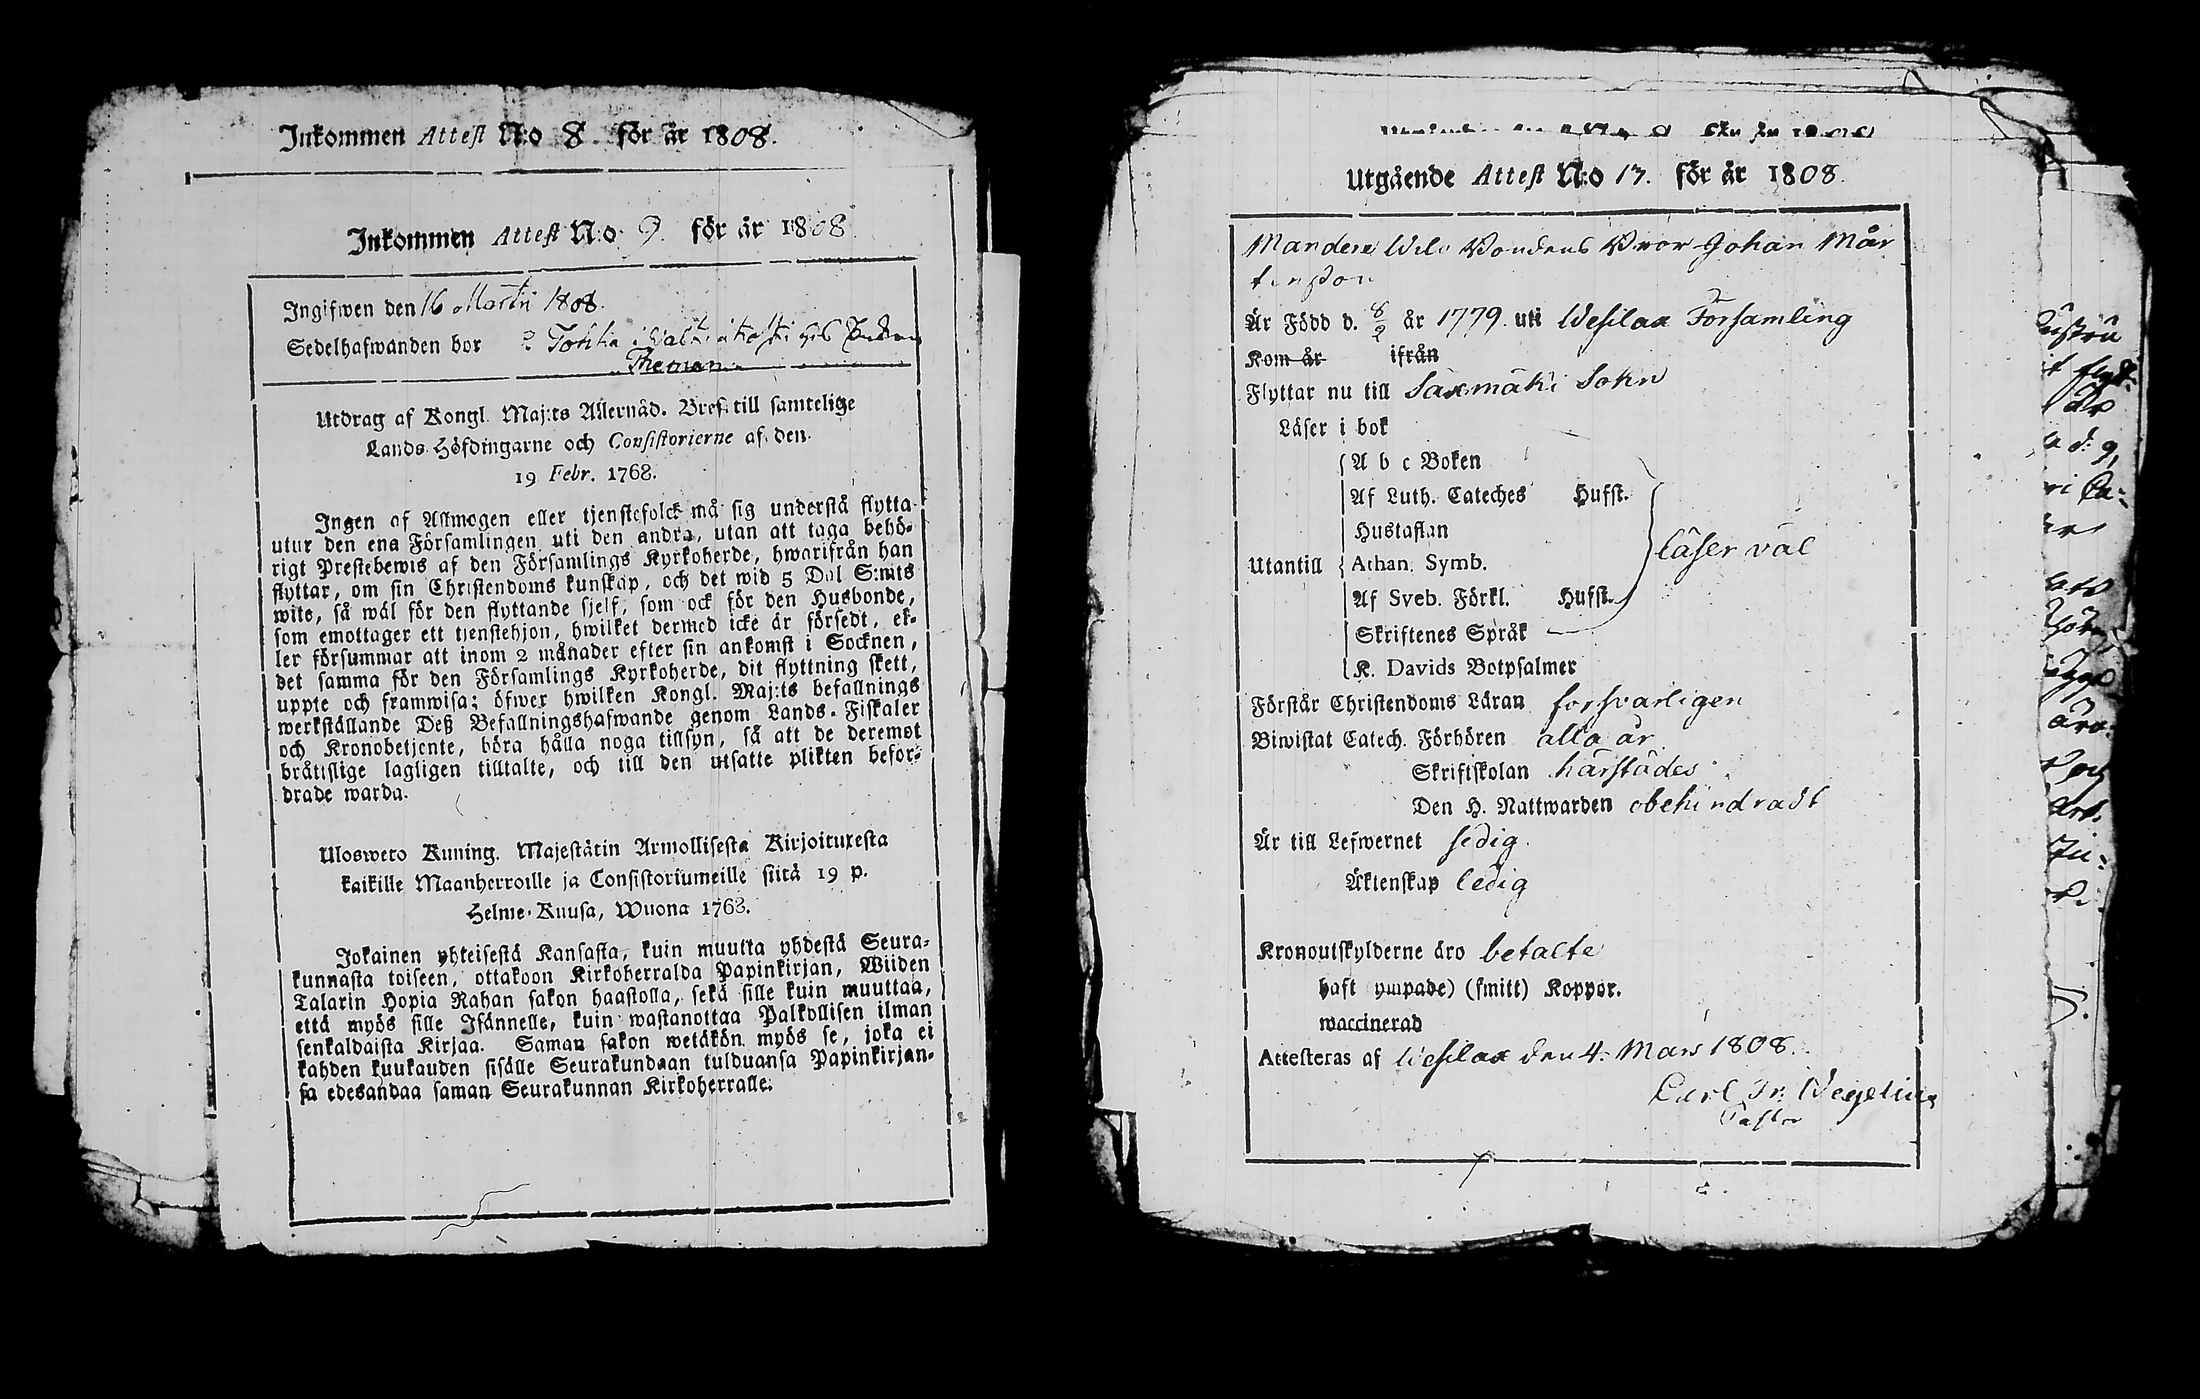 Inkommen Attest N:o 8. för år 1808.
Inkommen Attest N:o 9. för år 1808
Ingifwen den 16 Martii 1808.
Sedelhafwanden bor
Utdrag af Kongl. Maj:ts Allernåd. Bref till samtelige
Lands Höfdingarne och Consistorierne af den
19 Febr. 1768.
Ingen af Allmogen eller tjenstefolck må sig understå flytta
utur den ena Församlingen uti den andra, utan att taga behö-
rigt Prestebewis af den Församlings Kyrkoherde, hwarifrån han
flyttar, om sin Christendoms kunskap, och det wid 5 Dal S:mts
wite, så wäl för den flyttande sjelf, som ock för den Husbonde,
som emottager ett tjenstehjon, hwilket dermed icke är försedt, el-
ler försummar att inom 2 månader efter sin ankomst i Socknen,
det samma för den Församlings Kyrkoherde, dit flyttning skett,
uppte och framwisa; öfwer hwilken Kongl. Maj:ts befallnings
werkställande Deß Befallningshafwande genom Lands-Fiskaler
och Kronobetjente, böra hålla noga tillsyn, så att de deremot
bråttslige lagligen tilltalte, och till den utsatte plikten befor-
drade warda.
Uloswето Kuning. Majestätin Armollisesta Kirjoituxesta
kaikille Maanherroille ja Consistoriumeille siitä 19 p.
Helme-Kuusa, Wuona 1768.
Jokainen yhteisestä Kansasta, kuin muutta yhdestä Seura-
kunnasta toiseen, ottakoon Kirkoherralda Papinkirjan, Wiiden
Talarin Hopia Rahan sakon haastolla, sekä sille kuin muuttaa,
että myös sille Isännelle, kuin wastanottaa Palkollisen ilman
senkaldaista Kirjaa. Saman sakon wetäkön myös se, joka ei
kahden kuukauden sisälle Seurakundaan tulduansa Papinkirjan-
sa edesandaa saman Seurakunnan Kirkoherralle.
Utgående Attest N:o 13. för år 1808.
Johan Mår
tensson
Är Född d. 8/2 år 1779. uti Wesilax Församling
Kom år ifrån
Flyttar nu till Saxmäki Sokn
Läser i bok
A b c Boken
Af Luth. Cateches Hufst.
Hustaflan
Utantill Athan. Symb.
läser väl
Af Sveb. Förkl. Hufst.
Skriftenes Språk
K. Davids Botpsalmer
Förstår Christendoms Läran forsvarligen
Biwistat Catech. Förhören alla år
Skriftskolan härstädes
Den H. Nattwarden obehindradt
Är till Lefwernet sedig.
Äktenskap ledig
Kronoutskylderne äro betalte
haft (ympade) (smitt) Koppor.
waccinerad
Attesteras af Wesilax den 4. Mars 1808.
Carl Fr. Wegelius
Pastor